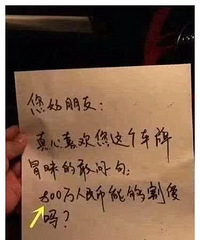 您好朋友：
真心喜欢您这个车牌
冒昧的敢问句：
800万人民币能够割爱
吗？